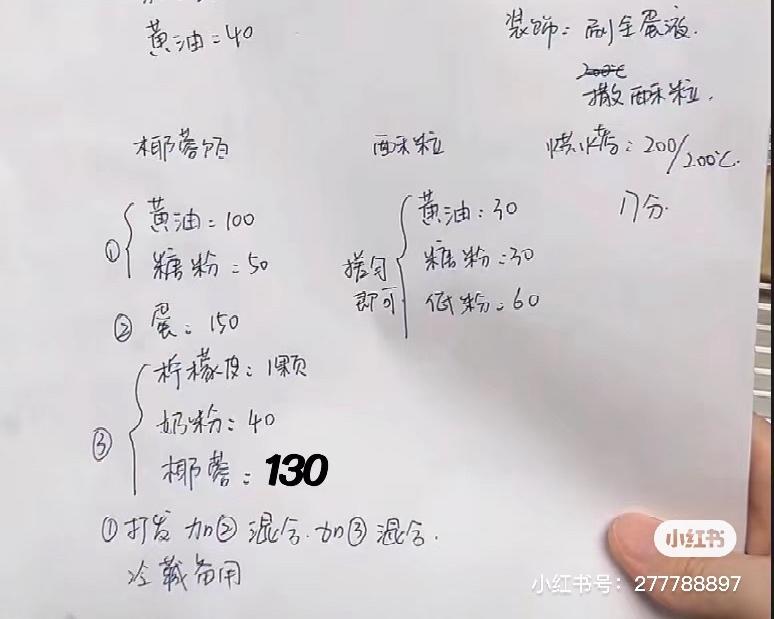 黄油：40
装饰：刷全蛋液.
200℃
撒酥粒.
烘烤：200/200℃.
17分.
椰蓉馅
① 黄油：100
糖粉：50
② 蛋：150
③ 柠檬皮：1颗
奶粉：40
椰蓉：130
①打发 加②混合.加③混合.
冷藏备用
酥粒
搓匀即可
黄油：30
糖粉：30
低粉：60
小红书
小红书号：277788897